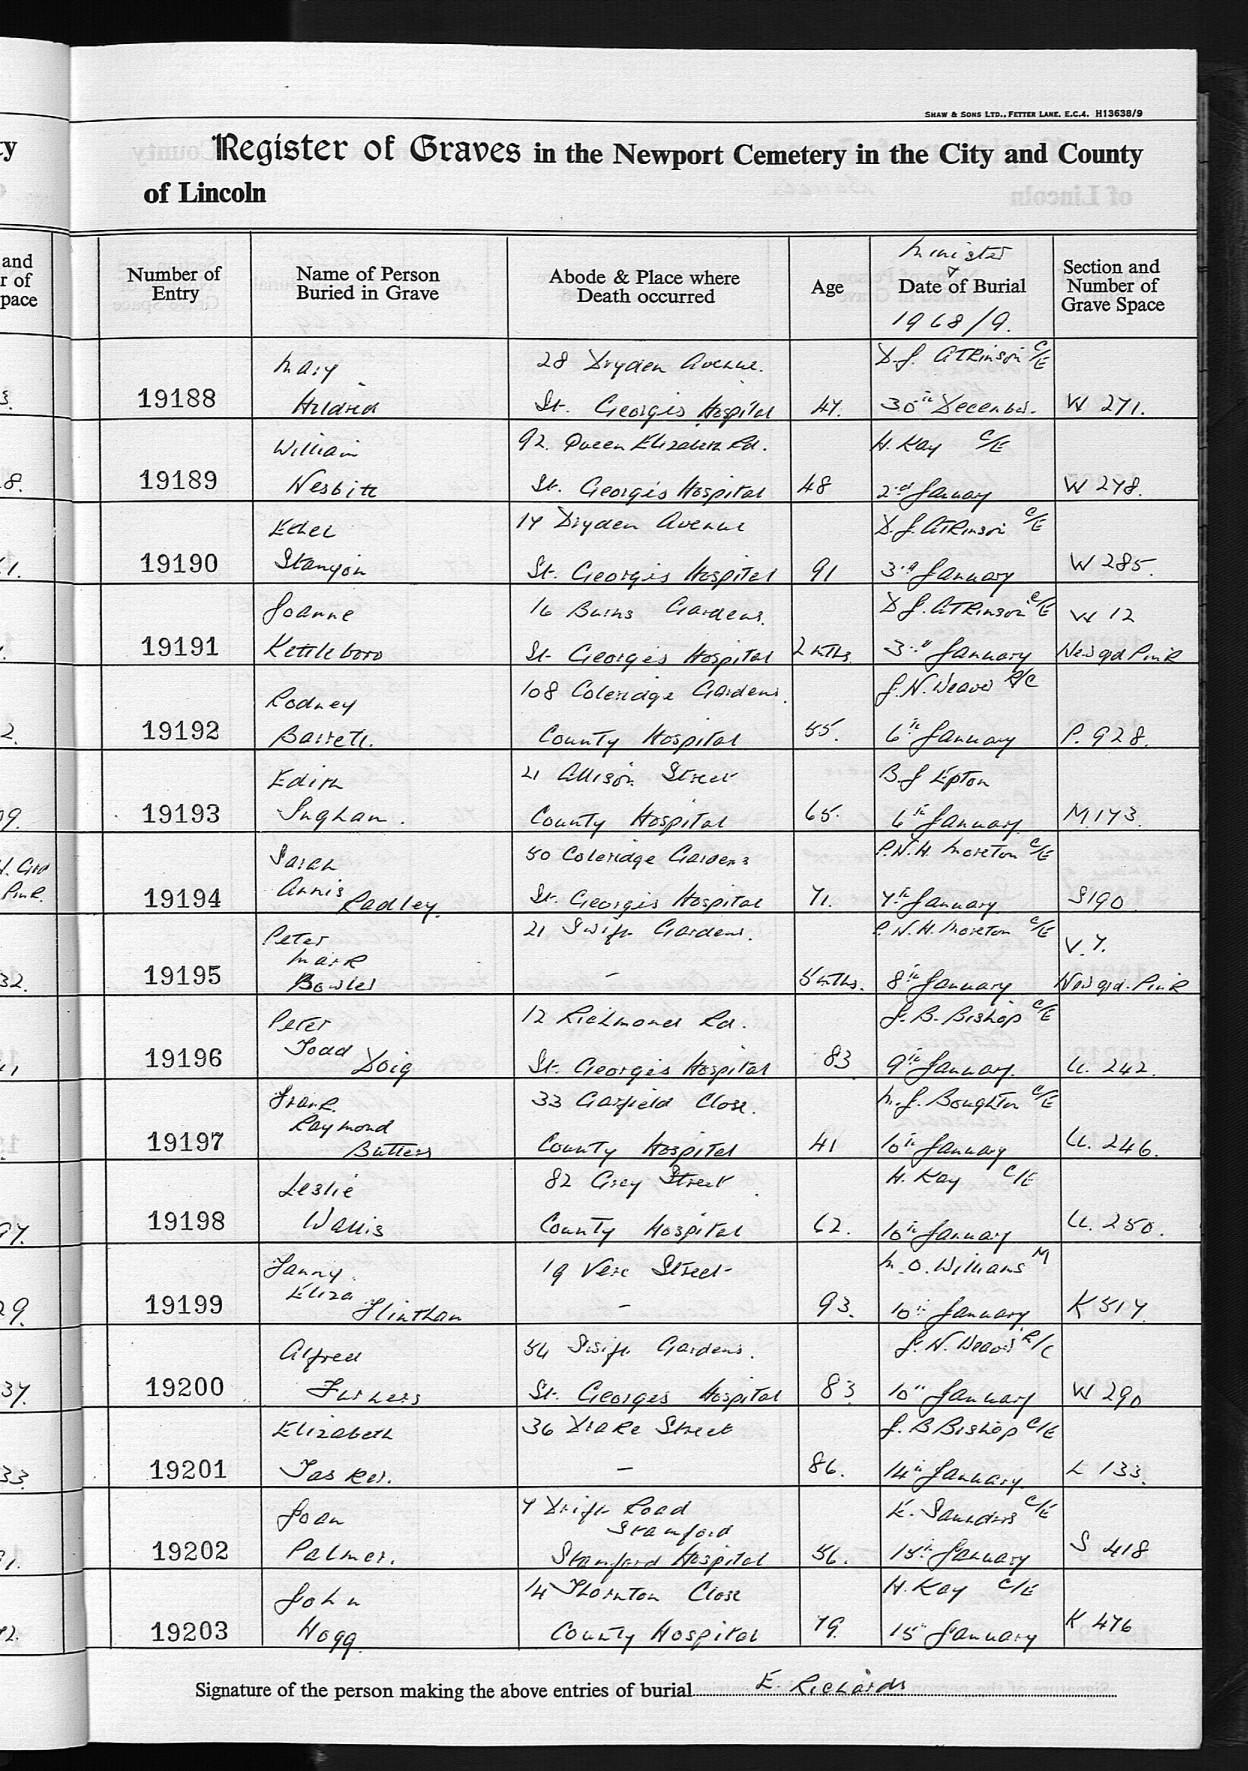 SHAW & SONS LTD., FETTER LANE, E.C.4. H13638/9
Register of Graves in the Newport Cemetery in the City and County
of Lincoln
Number of Entry
Name of Person Buried in Grave
Abode & Place where Death occurred
Age
Minister & Date of Burial 1968/9.
Section and Number of Grave Space
Mary 28 Dryden Avenue. D.J. Atkinson C/E
19188 Hildred St. George's Hospital 47. 30th December. W 271.
William 92. Queen Elizabeth Rd. H. Kay C/E
19189 Nesbitt St. George's Hospital 48 2nd January W 278.
Ethel 17 Dryden Avenue D.J. Atkinson C/E
19190 Stanyon St. George's Hospital 91 3rd January W 285.
Joanne 16 Burns Gardens. D J. Atkinson C/E W 12
19191 Kettleboro St. George's Hospital 2 mths. 3rd January New gd Pink
Rodney 108 Coleridge Gardens. J. N. Weaver R/C
19192 Barrett. County Hospital 55. 6th January P. 928.
Edith 21 Allison Street B. J Epton
19193 Ingham. County Hospital 65. 6th January M.173.
Sarah 50 Coleridge Gardens P.N.H. Moreton C/E
19194 Annis Radley. St. George's Hospital 71. 7th January S190
Peter 21 Swift Gardens. P. N.H. Moreton C/E V. 7.
Mark
19195 Bowler – 5 mths. 8th January New grd. Pink
Peter 12 Richmond Rd. J. B. Bishop C/E
19196 Todd Doig St. George's Hospital 83 9th January U. 242.
Frank 33 Garfield Close. M. J. Boughton C/E
Raymond
19197 Butters County Hospital 41 10th January U. 246.
Leslie 82 Grey Street. H. Kay C/E
19198 Wallis County Hospital 62. 10th January U. 250.
Fanny 19 Vere Street M. O. Williams M
19199 Eliza Flintham – 93. 10th January K 517.
Alfred 54 Swift Gardens. J. N. Weaver R/C
19200 St. Georges Hospital 83 10th January W 290
Elizabeth 36 Drake Street J. B Bishop C/E
19201 Tasker. – 86. 14th January L 133.
Joan 7 Drift Road K. Saunders C/E
Stamford
19202 Palmer. Stamford Hospital 56. 15th January S 418
John 14 Thornton Close H. Kay C/E
19203 Hogg. County Hospital 79. 15th January K 476
Signature of the person making the above entries of burial E. Richards